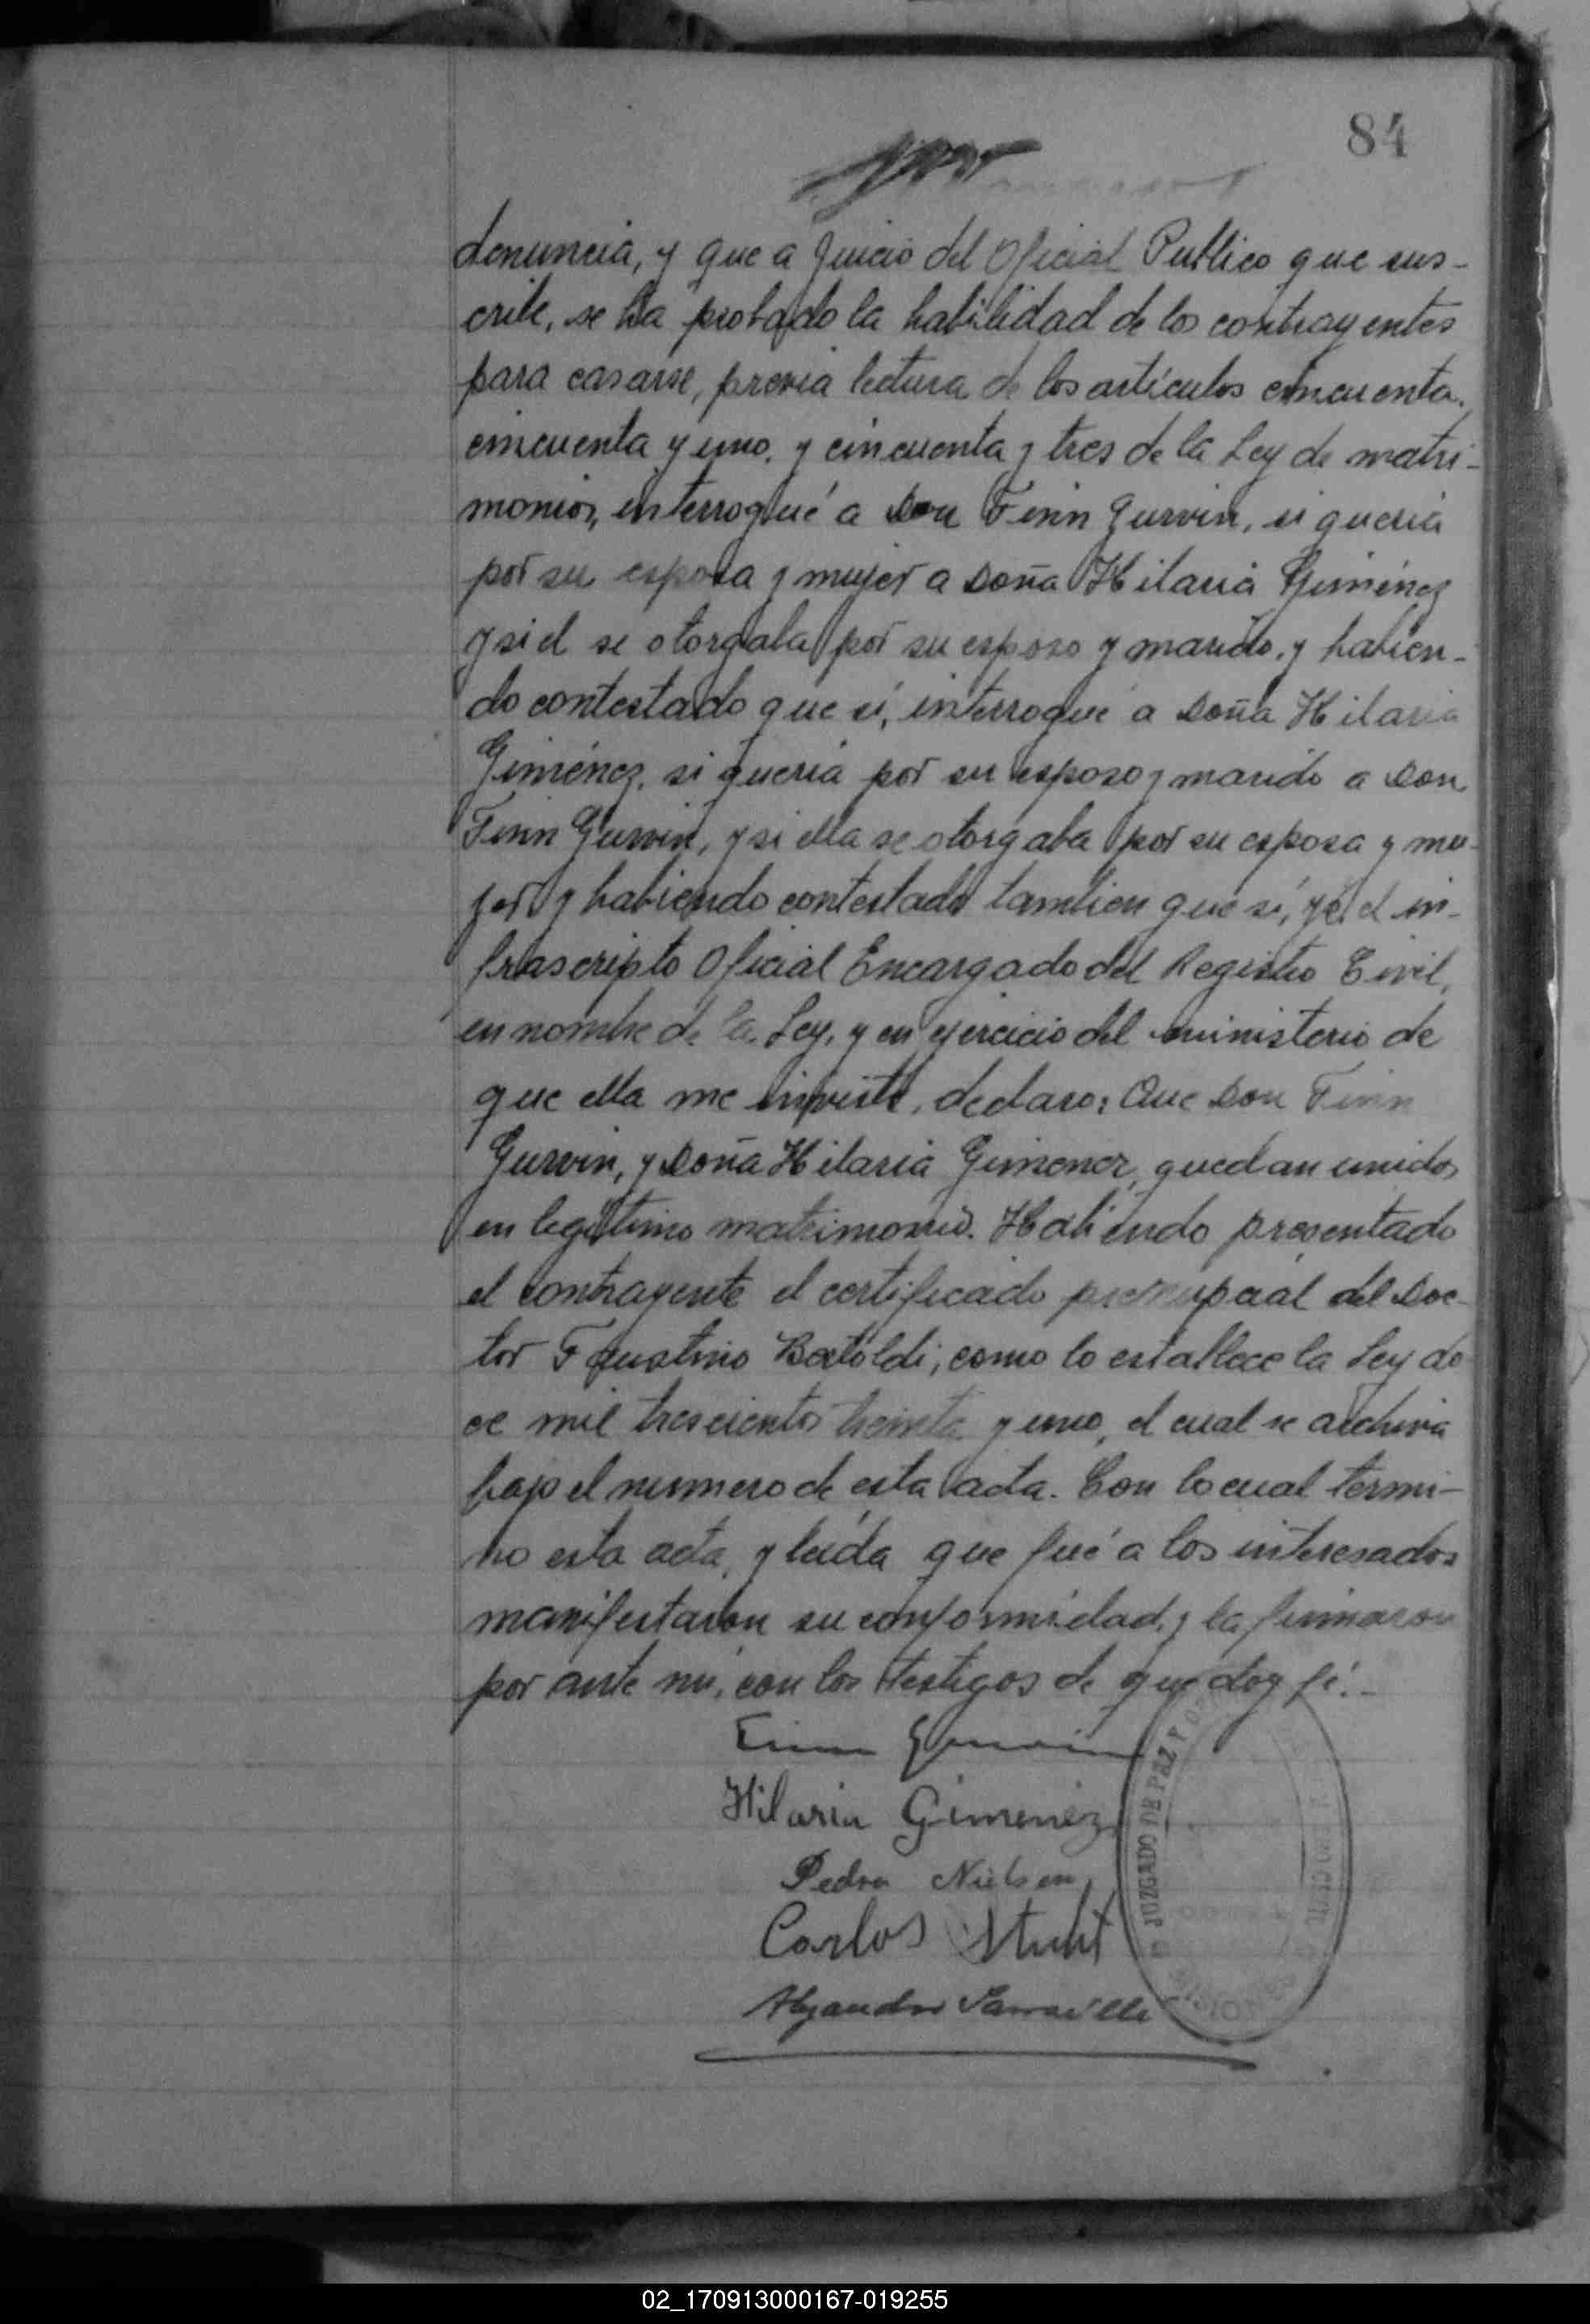 84
denuncia, y que a Juicio del Oficial Publico que sus-
cribe, se ha probado la habilidad de los contrayentes
para casarse, previa lectura de los artículos cincuenta,
cincuenta y uno, y cincuenta y tres de la Ley de matri-
monios, interrogué a Don Finn Gurvin, si queria
por su esposa y mujer a Doña Hilaria Giménez
y si el se otorgaba por su esposo y marido, y habien-
do contestado que sí, interrogué a Doña Hilaria
Giménez, si queria por su esposo y marido a Don
Finn Gurvin, y si ella se otorgaba por su esposa y mu-
jer y habiendo contestado tambien que sí, yo, el in-
frascripto Oficial Encargado del Registro Civil,
en nombre de la Ley, y en ejercicio del ministerio de
que ella me inviste, declaro: Que Don Finn
Gurvin, y Doña Hilaria Gimenez, quedan unidos
en legítimo matrimonio. Habiendo presentado
el contrayente el certificado prenupcial del Doc-
tor Faustino Bertoldi, como lo establece la Ley do
ce mil trescientos treinta y uno, el cual se archiva
bajo el numero de esta acta. Con lo cual termi-
no esta acta, y leída que fué a los interesados
manifestaron su conformidad, y la firmaron
por ante mí, con los testigos de que doy fé.-
Finn Gurvin
Hilaria Gimenéz
Pedro Nielsen
Carlos
Alejandro
JUZGADO DE PAZ Y
MISIONES
02_170913000167-019255